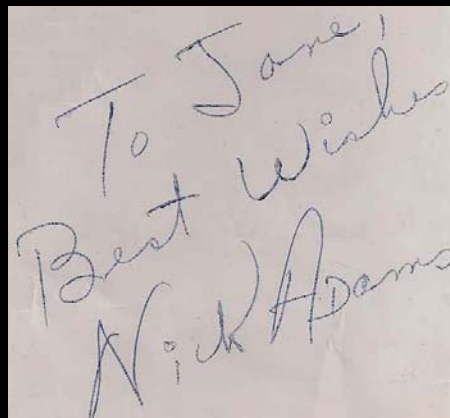 To Jane,
Best Wishes
Nick Adams